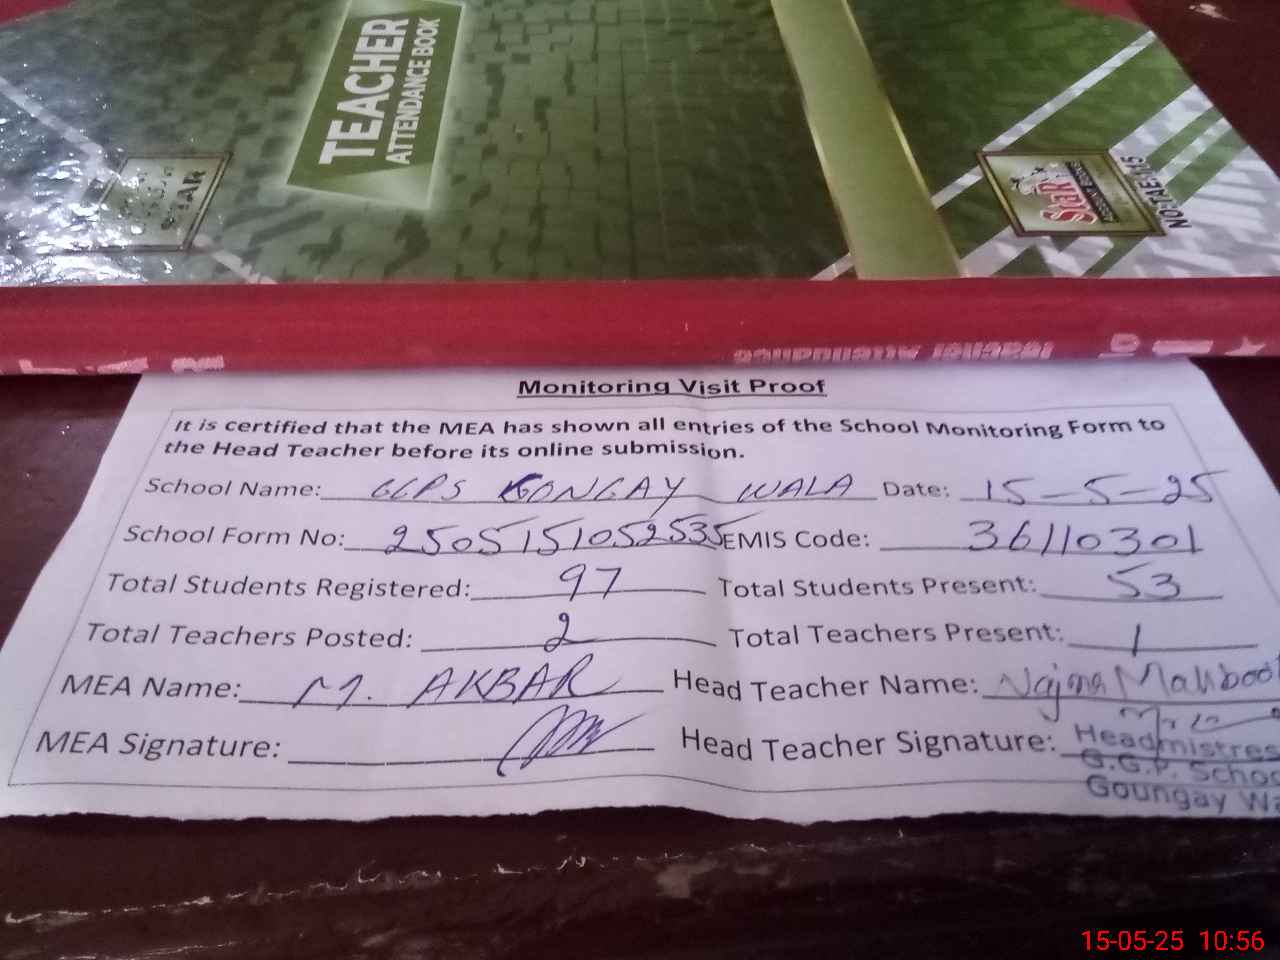 TEACHER
ATTENDANCE BOOK
STAR
NO:TAE-115
Monitoring Visit Proof
It is certified that the MEA has shown all entries of the School Monitoring Form to
the Head Teacher before its online submission.
School Name: GGPS GONGAY WALA Date: 15-5-25
School Form No: 2505151052535 EMIS Code: 36110301
Total Students Registered: 97 Total Students Present: 53
Total Teachers Posted: 2 Total Teachers Present: 1
MEA Name: M. AKBAR Head Teacher Name: Najma Mahboo
MEA Signature: Head Teacher Signature:
Headmistres
G.G.P. Schoo
Goungay Wa
15-05-25 10:56